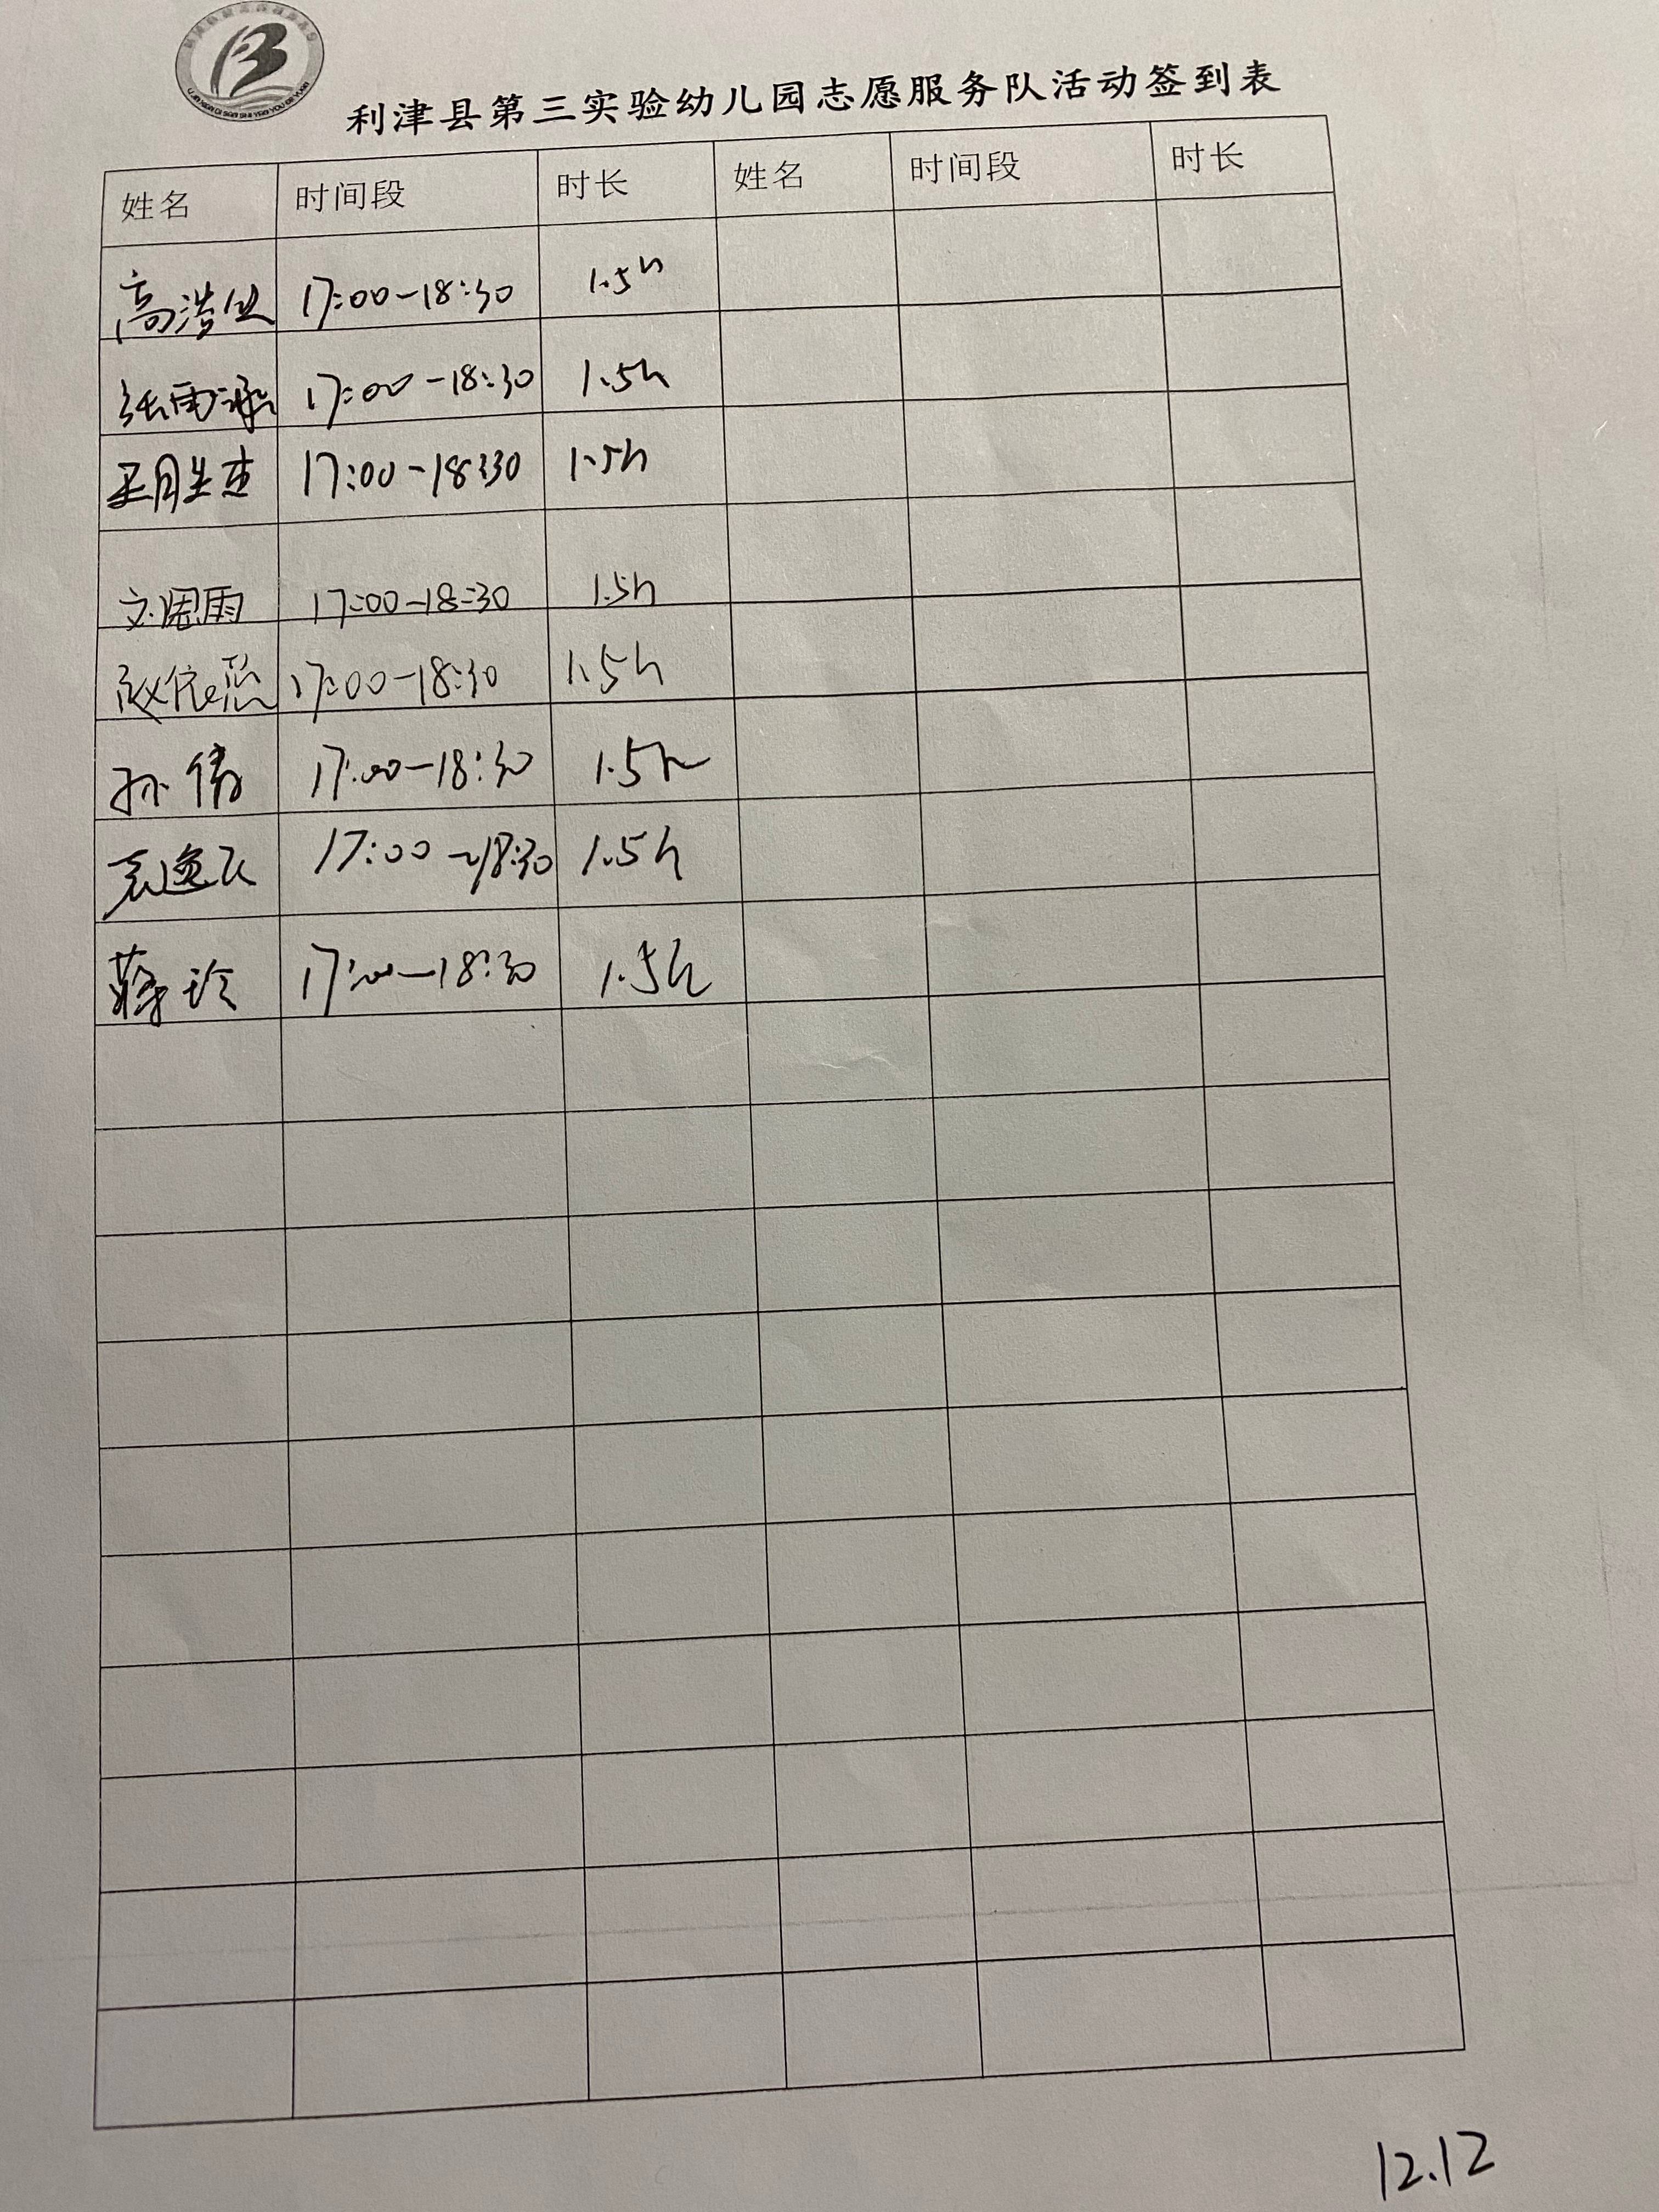 利津县第三实验幼儿园志愿服务队活动签到表
姓名 时间段 时长 姓名 时间段 时长
17:00-18:30 1.5h
张雨 17:00-18:30 1.5h
17:00-18:30 1.5h
刘思雨 17:00-18:30 1.5h
赵依 17:00-18:30 1.5h
孙倩 17:00-18:30 1.5h
袁逸飞 17:00-18:30 1.5h
蒋玲 17:00-18:30 1.5h
12.12